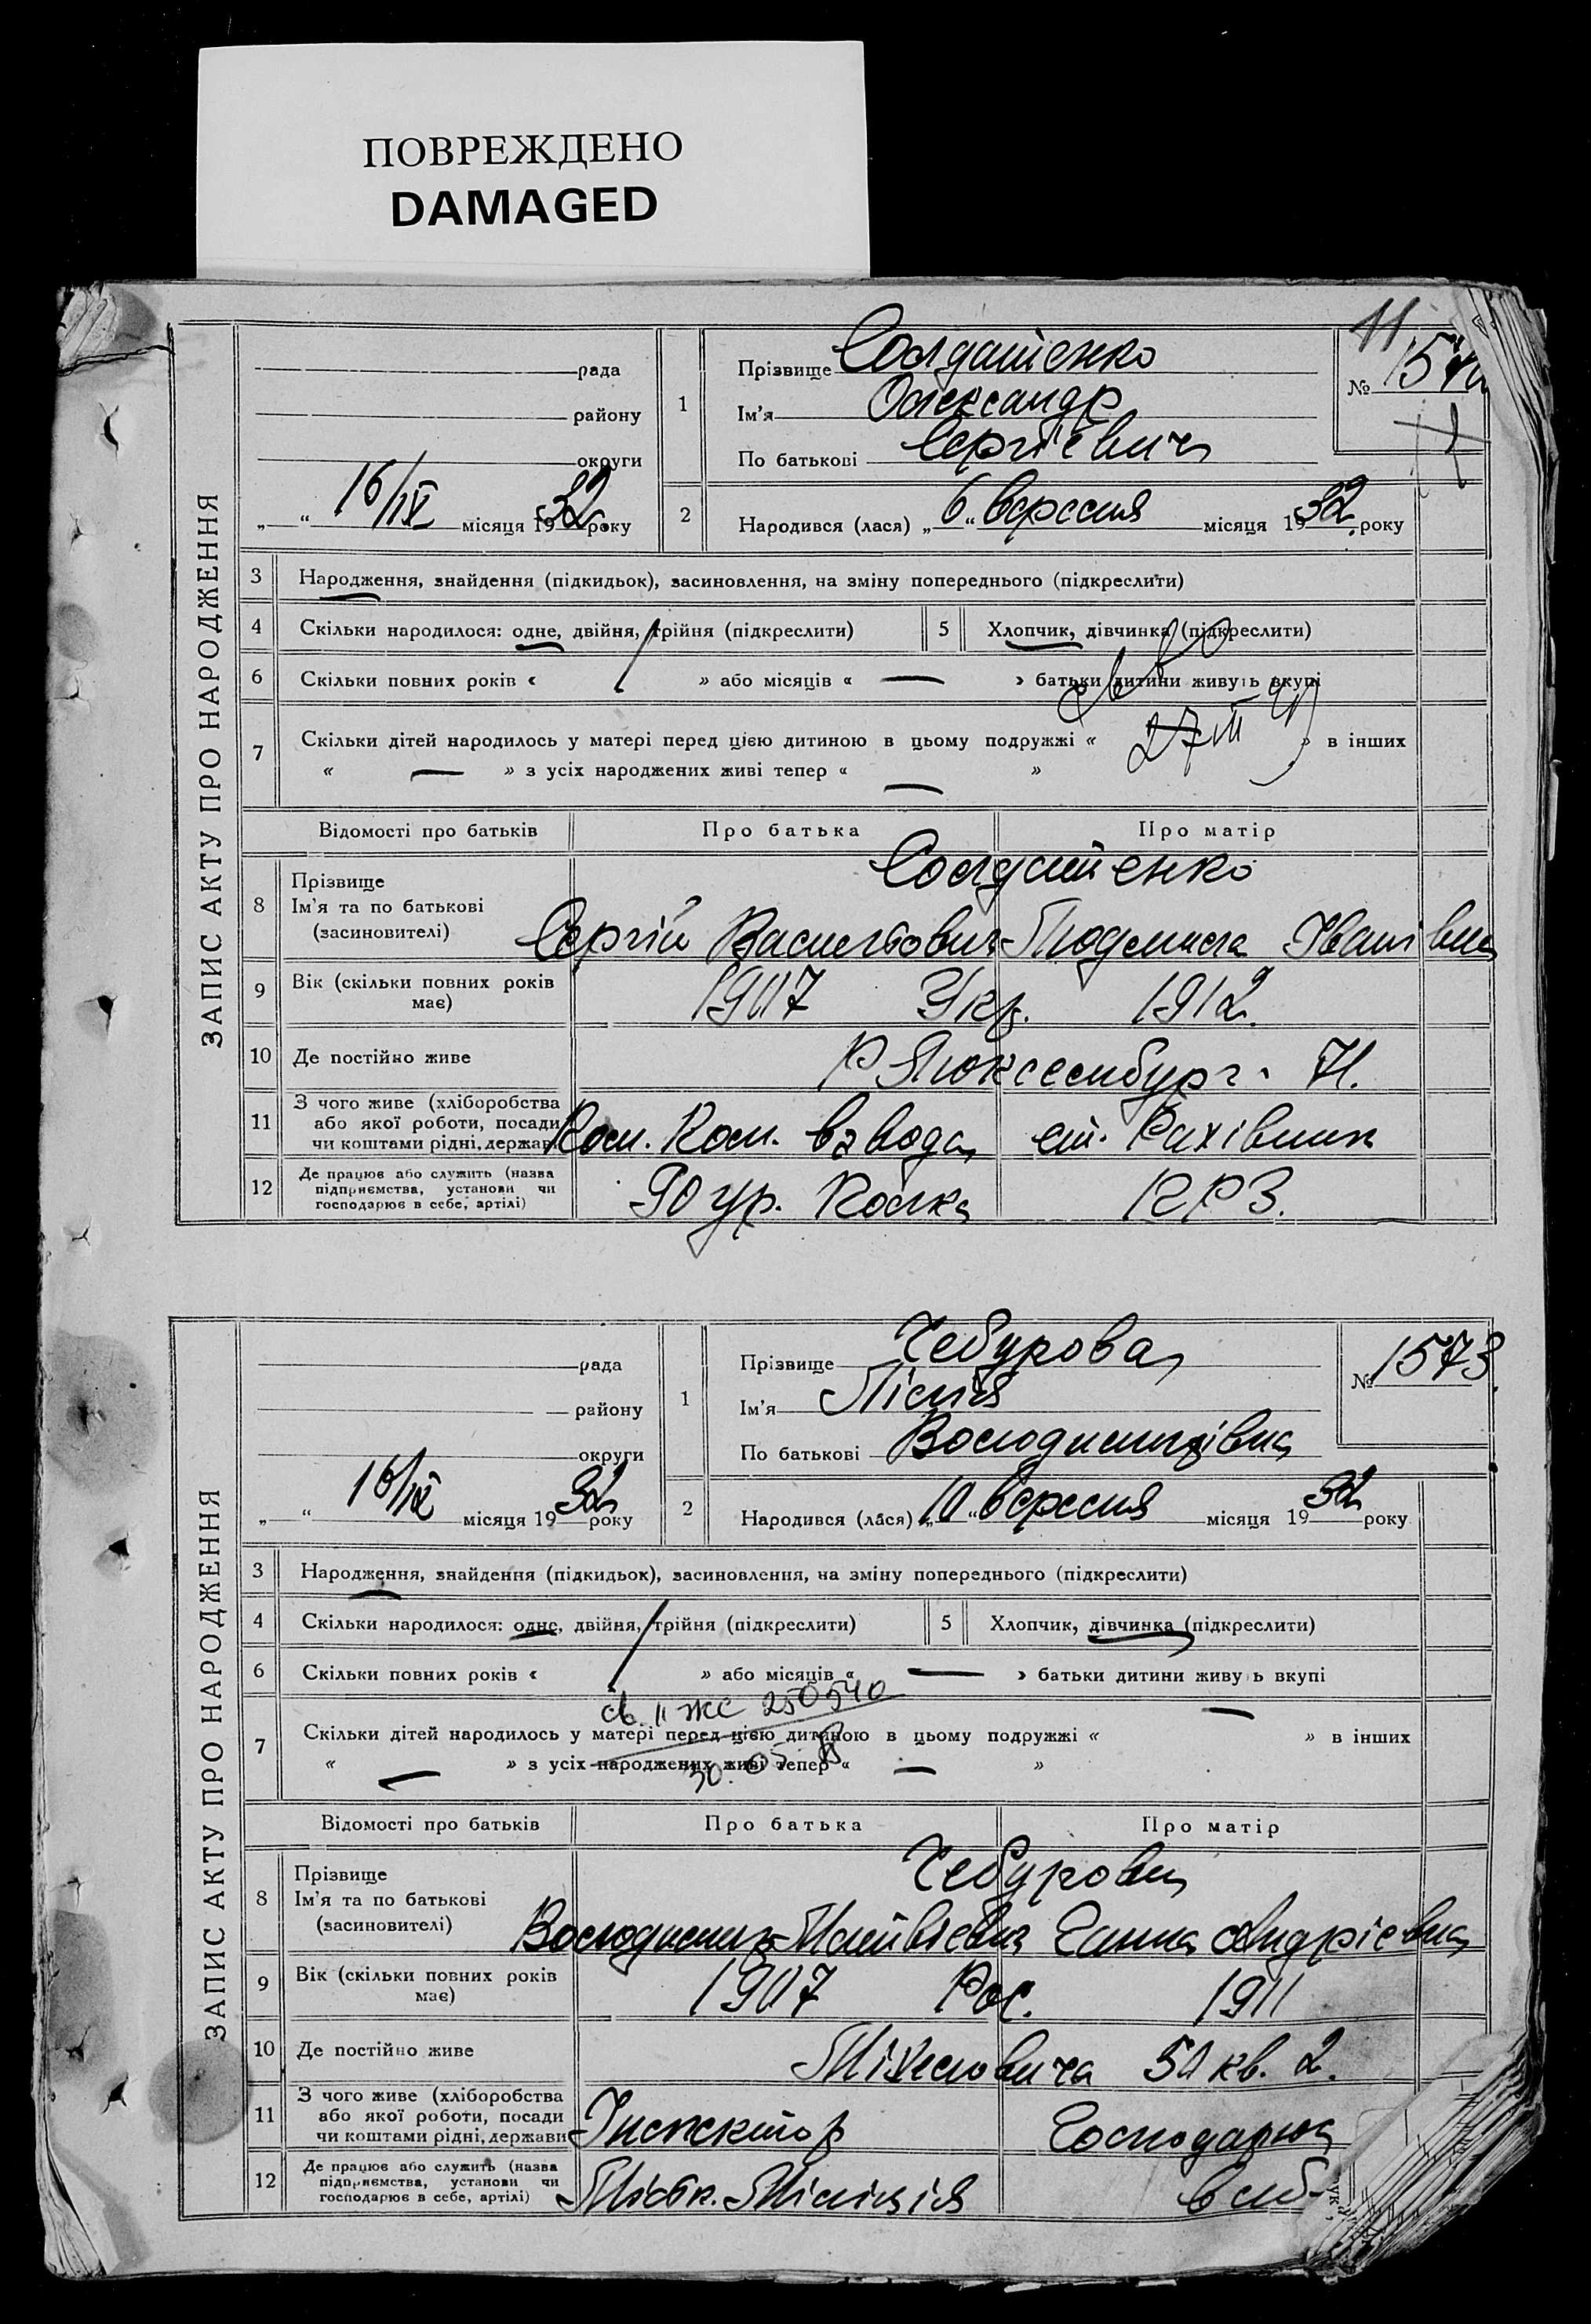 ПОВРЕЖДЕНО
DAMAGED
ЗАПИС АКТУ ПРО НАРОДЖЕННЯ
11
рада
району
округи
„ “ 16/IX місяця 1932 року
1
Прізвище Солдатенко
Ім'я Олександр
По батькові Сергієвич
№
2 Народився (лася) „6“ вересня місяця 1932 року
3 Народження, знайдення (підкидьок), засиновлення, на зміну попереднього (підкреслити)
4 Скільки народилося: одне, двійня, трійня (підкреслити)
5 Хлопчик, дівчинка (підкреслити)
6 Скільки повних років « » або місяців « — » батьки дитини живуть вкупі
7 Скільки дітей народилось у матері перед цією дитиною в цьому подружжі « » в інших
« — » з усіх народжених живі тепер « — »
Відомості про батьків Про батька Про матір
8 Прізвище
Ім'я та по батькові
(засиновителі)
Солдатенко
Сергій Васильович Людмила Іванівна
9 Вік (скільки повних років має)
1907 Укр. 1912.
10 Де постійно живе
Р Люксембург
11 З чого живе (хліборобства
або якої роботи, посади
чи коштами рідні, держави
Пом. Ком. взвода ст. Рахівник
12 Де працює або служить (назва
підприємства, установи чи
господарює в себе, артілі)
90 Полка
ЗАПИС АКТУ ПРО НАРОДЖЕННЯ
рада
району
округи
„ “ 16/IX місяця 1932 року
1
Прізвище Чебурова
Ім'я Лілія
По батькові Володимирівна
№ 1573
2 Народився (лася) „10“ вересня місяця 1932 року
3 Народження, знайдення (підкидьок), засиновлення, на зміну попереднього (підкреслити)
4 Скільки народилося: одне, двійня, трійня (підкреслити)
5 Хлопчик, дівчинка (підкреслити)
6 Скільки повних років « » або місяців « — » батьки дитини живу ь вкупі
св. II ЖС 250540
7 Скільки дітей народилось у матері перед цією дитиною в цьому подружжі « — » в інших
« — » з усіх народжених живі тепер « — »
30. 05.
Відомості про батьків Про батька Про матір
8 Прізвище
Ім'я та по батькові
(засиновителі)
Чебурови
Володимир Матвієвич Ганна Андрієвна
9 Вік (скільки повних років має)
1907 Рос. 1911
10 Де постійно живе
кв. 2.
11 З чого живе (хліборобства
або якої роботи, посади
чи коштами рідні, держави
Інспектор Господарює
12 Де працює або служить (назва
підприємства, установи чи
господарює в себе, артілі)
Міліція в себ